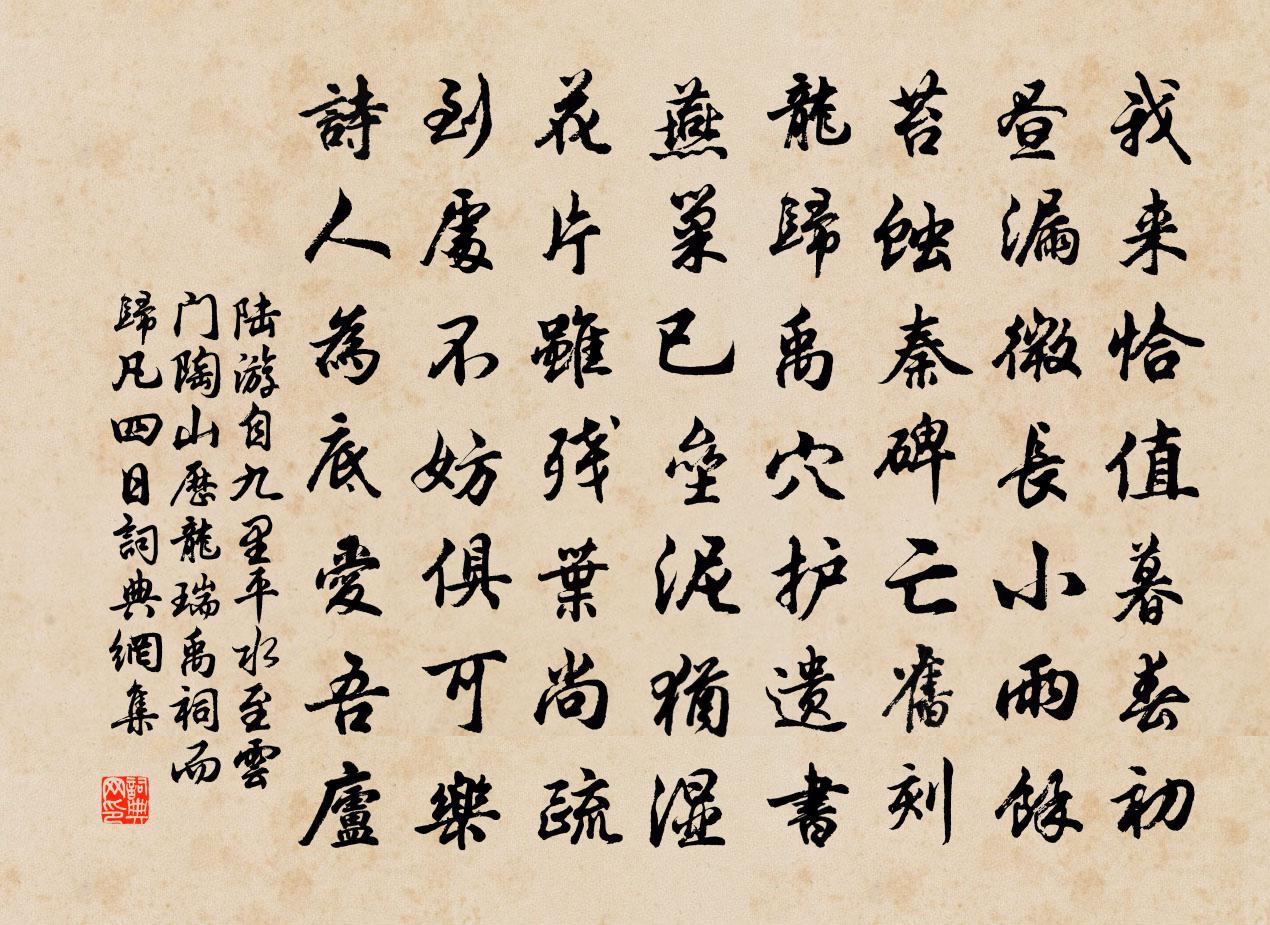 我来恰值暮春初
昼漏微長小雨餘
苔蝕秦碑亡舊刻
龍歸禹穴护遗書
燕巢已壘泥猶湿
花片雖残葉尚疏
到處不妨俱可樂
詩人為底愛吾廬
陆游自九里平水至雲
门陶山歷龍瑞禹祠而
歸凡四日詞典網集
詞典
网印